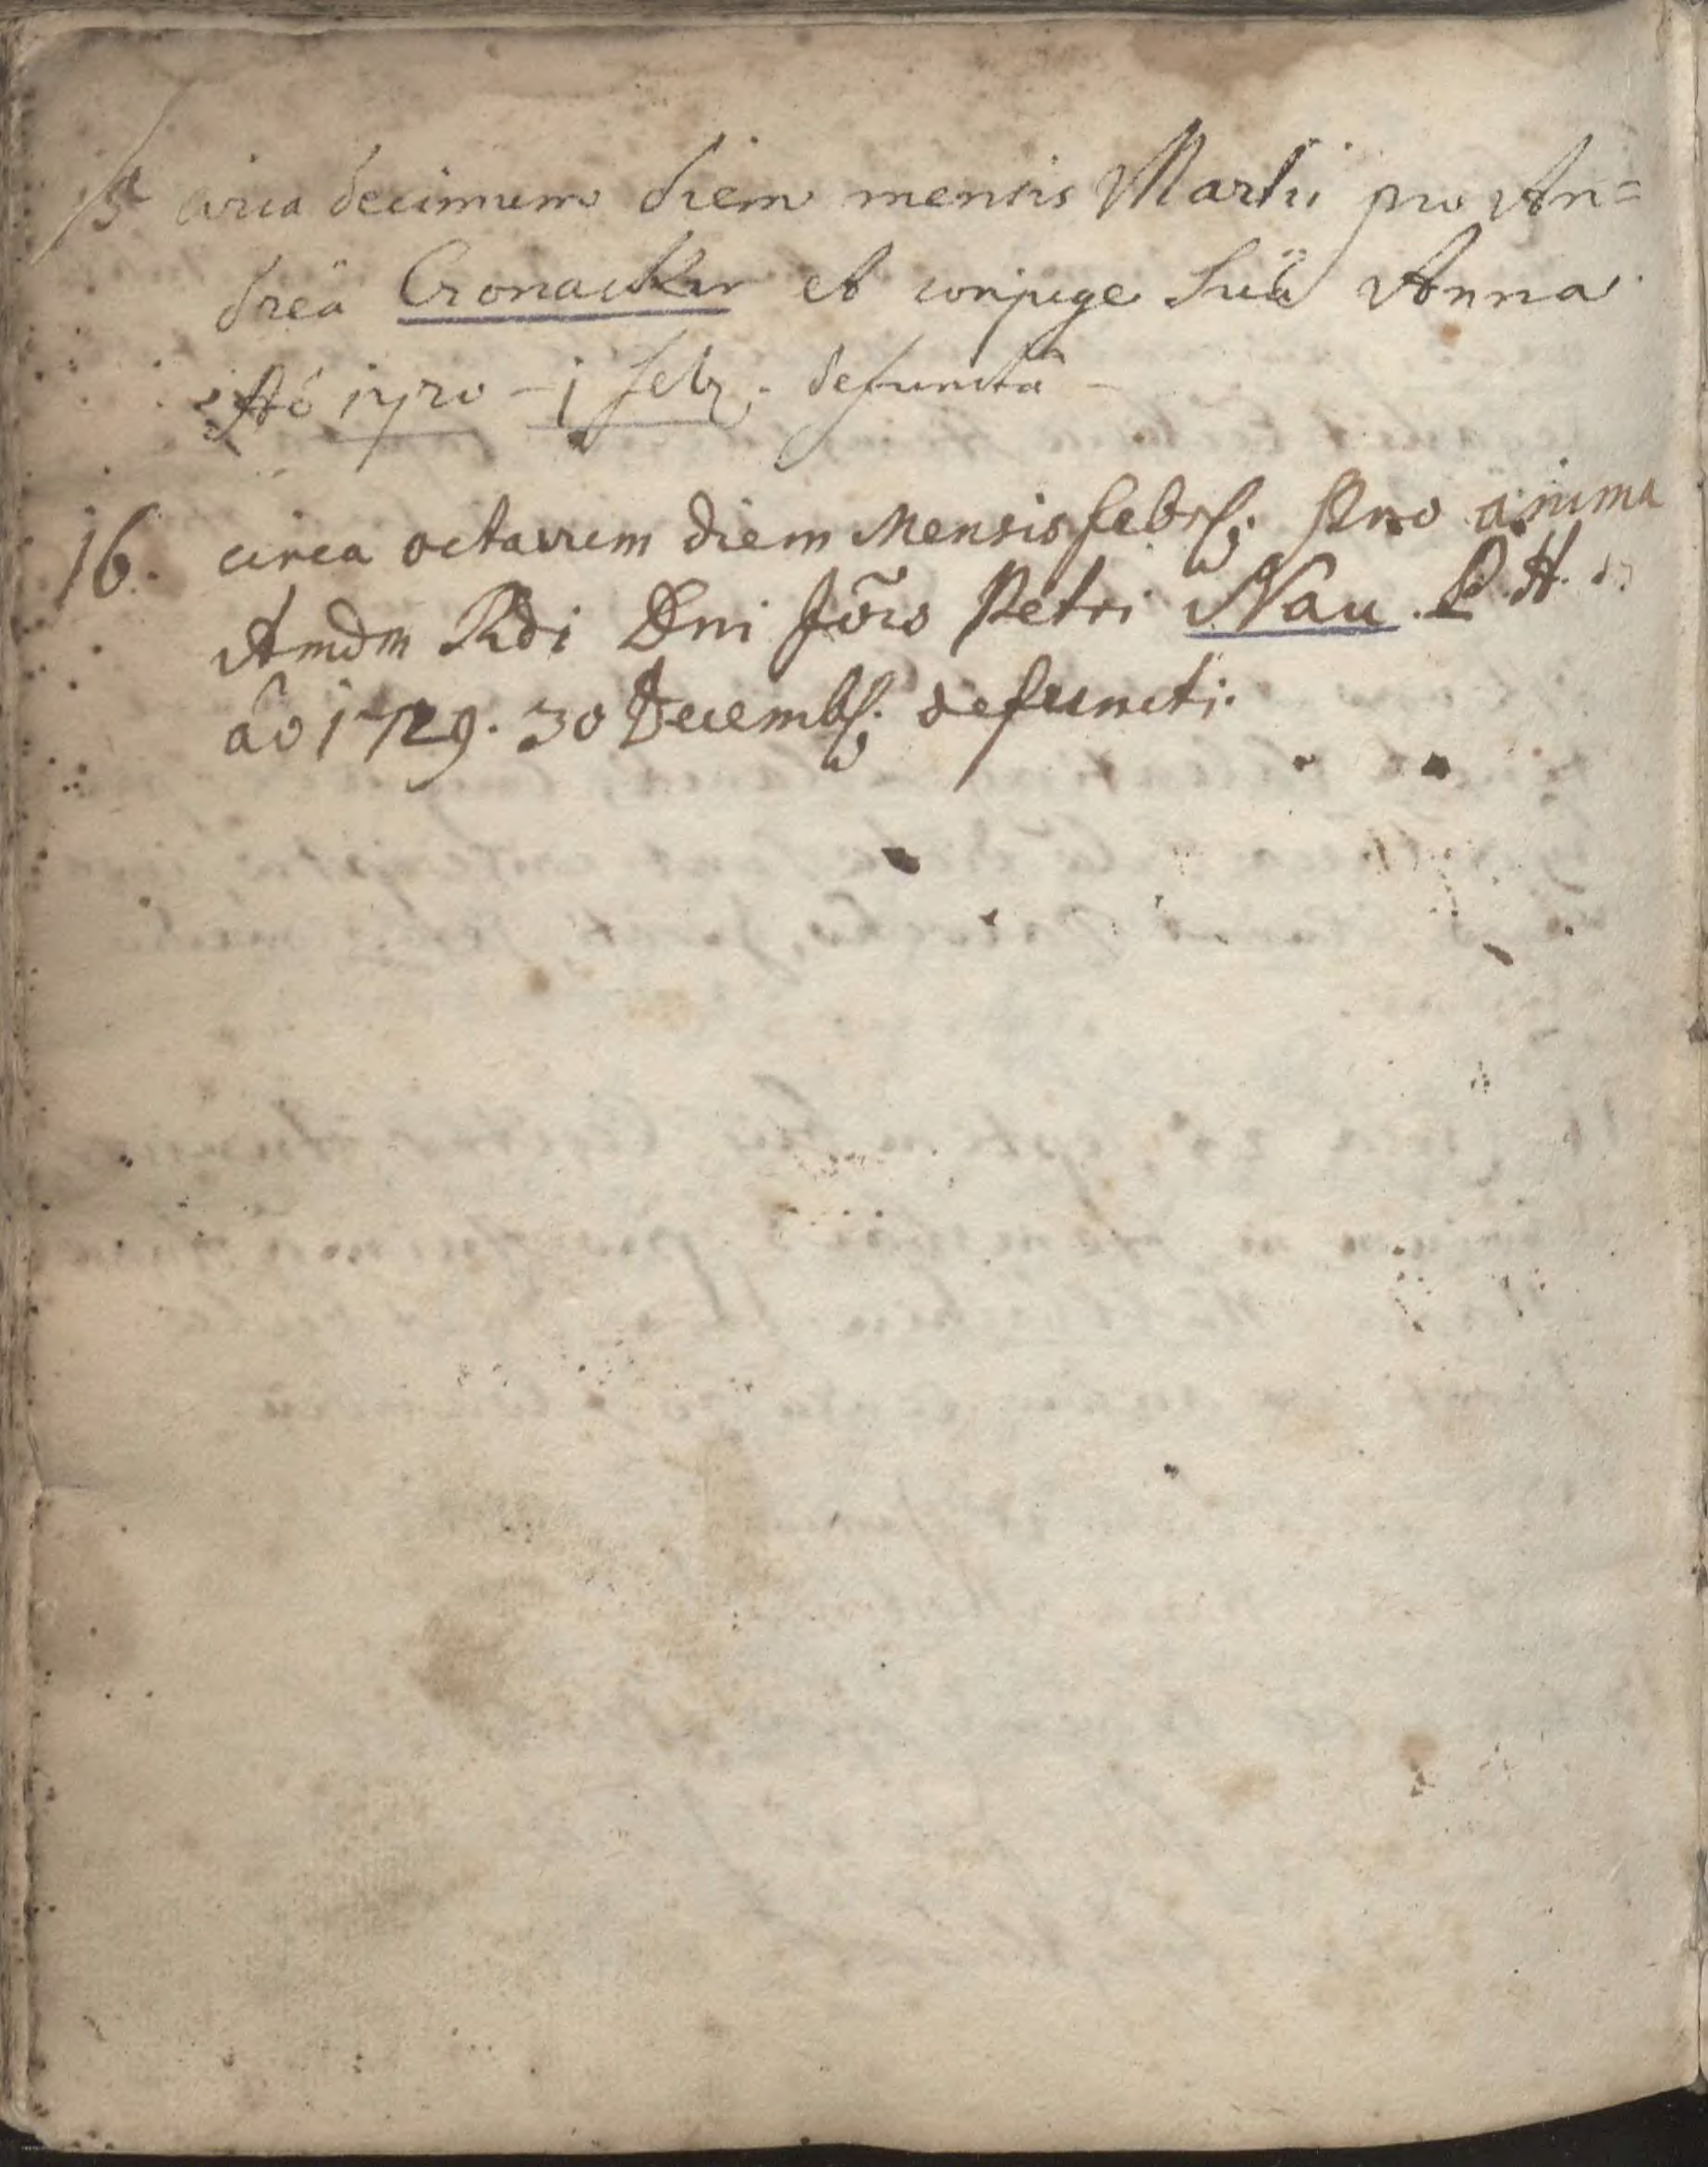 15ª circa decimum diem mensis Martii pro An=
dreä Cronacker et conjuge Suä Anna
Aõ 1720 – 1 febr. defunctä –
16. circa octavum diem Mensis febr. Pro anima
Amdm Rdi Dni Jõis Petri Nau. P. H.
ão 1729. 30 Decembr. defuncti.